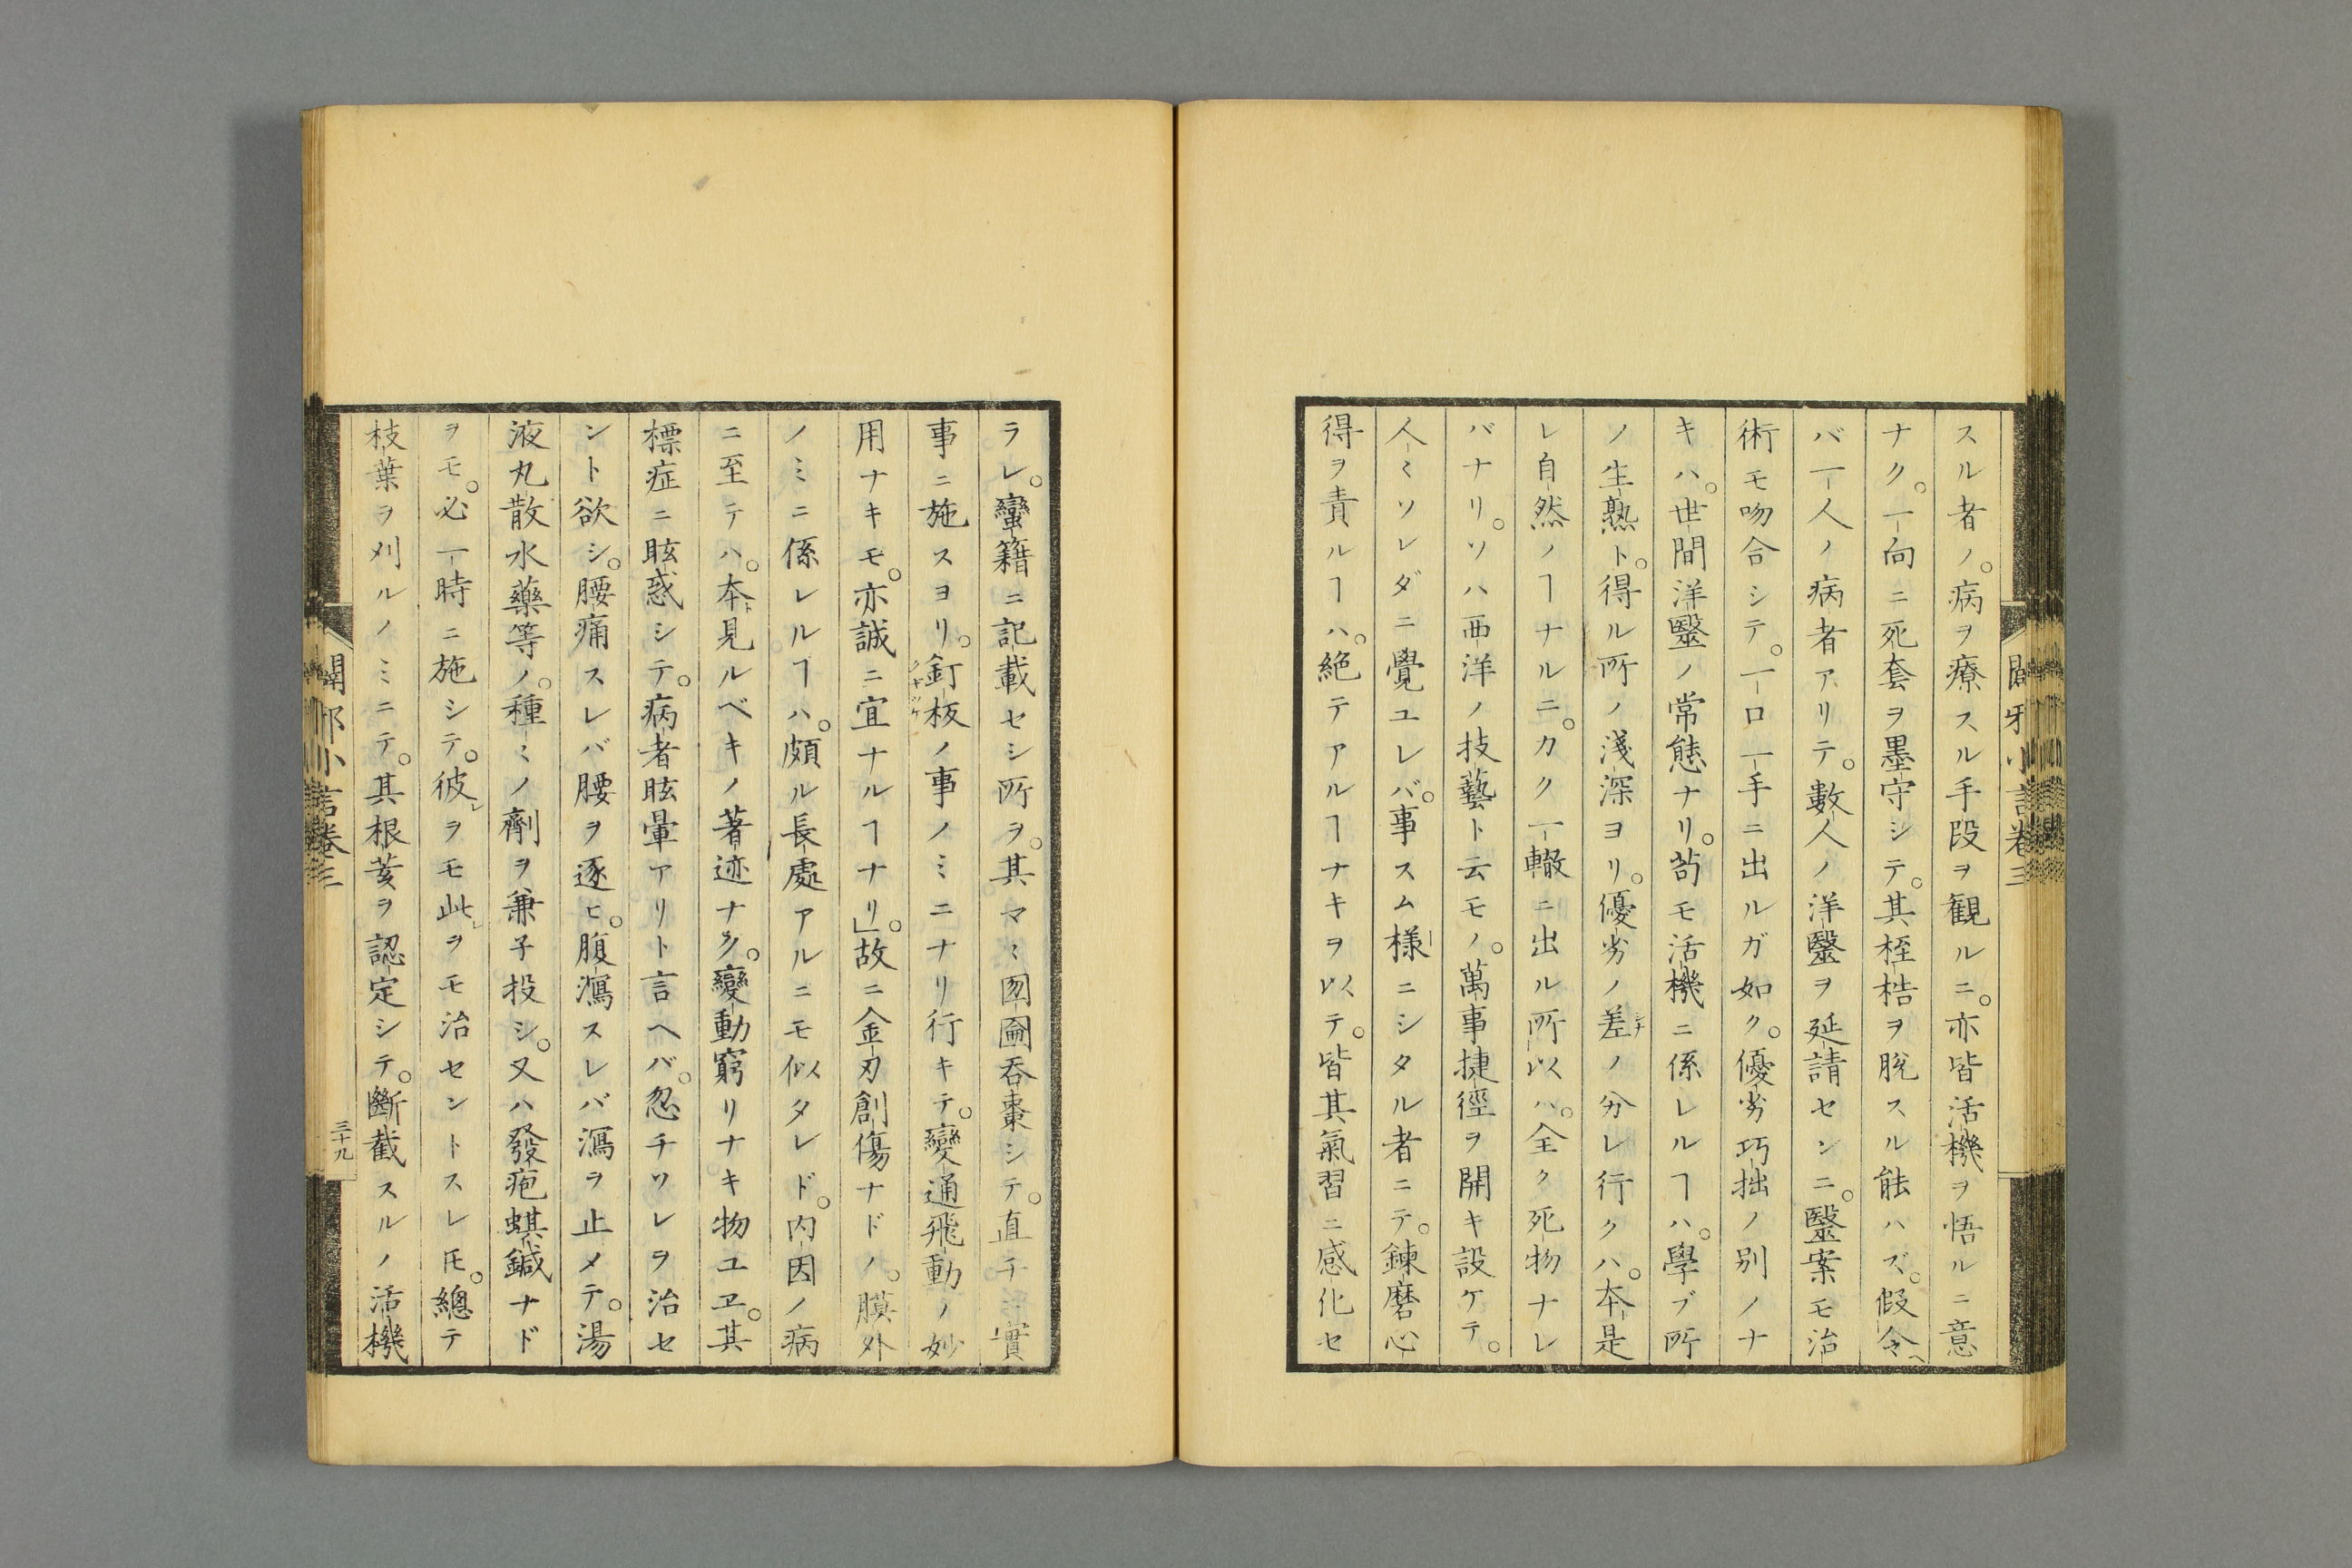 スル者ノ。病ヲ療スル手段ヲ観ルニ。亦皆活機ヲ悟ルニ意
ナク。一向ニ死套ヲ墨守シテ。其桎梏ヲ脱スル能ハズ。假令ヘ
バ一人ノ病者アリテ。數人ノ洋醫ヲ延請センニ。醫案モ治
術モ吻合シテ。一口一手ニ出ルガ如ク。優劣巧拙ノ別ノナ
キハ。世間洋醫ノ常態ナリ。苟モ活機ニ係レルヿハ。學ブ所
ノ生熟ト。得ル所ノ淺深ヨリ。優劣ノ差ノ分レ行クハ。本是
レ自然ノヿナルニ。カク一轍ニ出ル所以ハ。全ク死物ナレ
バナリ。ソハ西洋ノ技藝ト云モノ。萬事捷徑ヲ開キ設ケテ。
人〻ソレダニ覺ユレバ。事スム様ニシタル者ニテ。鍊磨心
得ヲ責ルヿハ。絶テアルヿナキヲ以テ。皆其氣習ニ感化セ
ラレ。蠻籍ニ記載セシ所ヲ。其マヽ囫圇呑棗シテ。直チニ實
事ニ施スヨリ。釘板ノ事ノミニナリ行キテ。變通飛動ノ妙
用ナキモ。亦誠ニ宜ナルヿナリ」。故ニ金刃創傷ナドノ。膜外
ノミニ係レルヿハ。頗ル長處アルニモ似タレド。内因ノ病
ニ至テハ。本ト見ルベキノ著迹ナク。變動窮リナキ物ユヱ。其
標症ニ眩惑シテ。病者眩暈アリト言ヘバ。忽チソレヲ治セ
ント欲シ。腰痛スレバ腰ヲ逐ヒ。腹瀉スレバ瀉ヲ止メテ。湯
液丸散水藥等ノ。種〻ノ劑ヲ兼子投シ。又ハ發疱蜞鍼ナド
ヲモ。必一時ニ施シテ。彼レヲモ此レヲモ治セントスレ𪜈。總テ
枝葉ヲ刈ルノミニテ。其根荄ヲ認定シテ。斷截スルノ活機
闢邪小言卷三
三十九